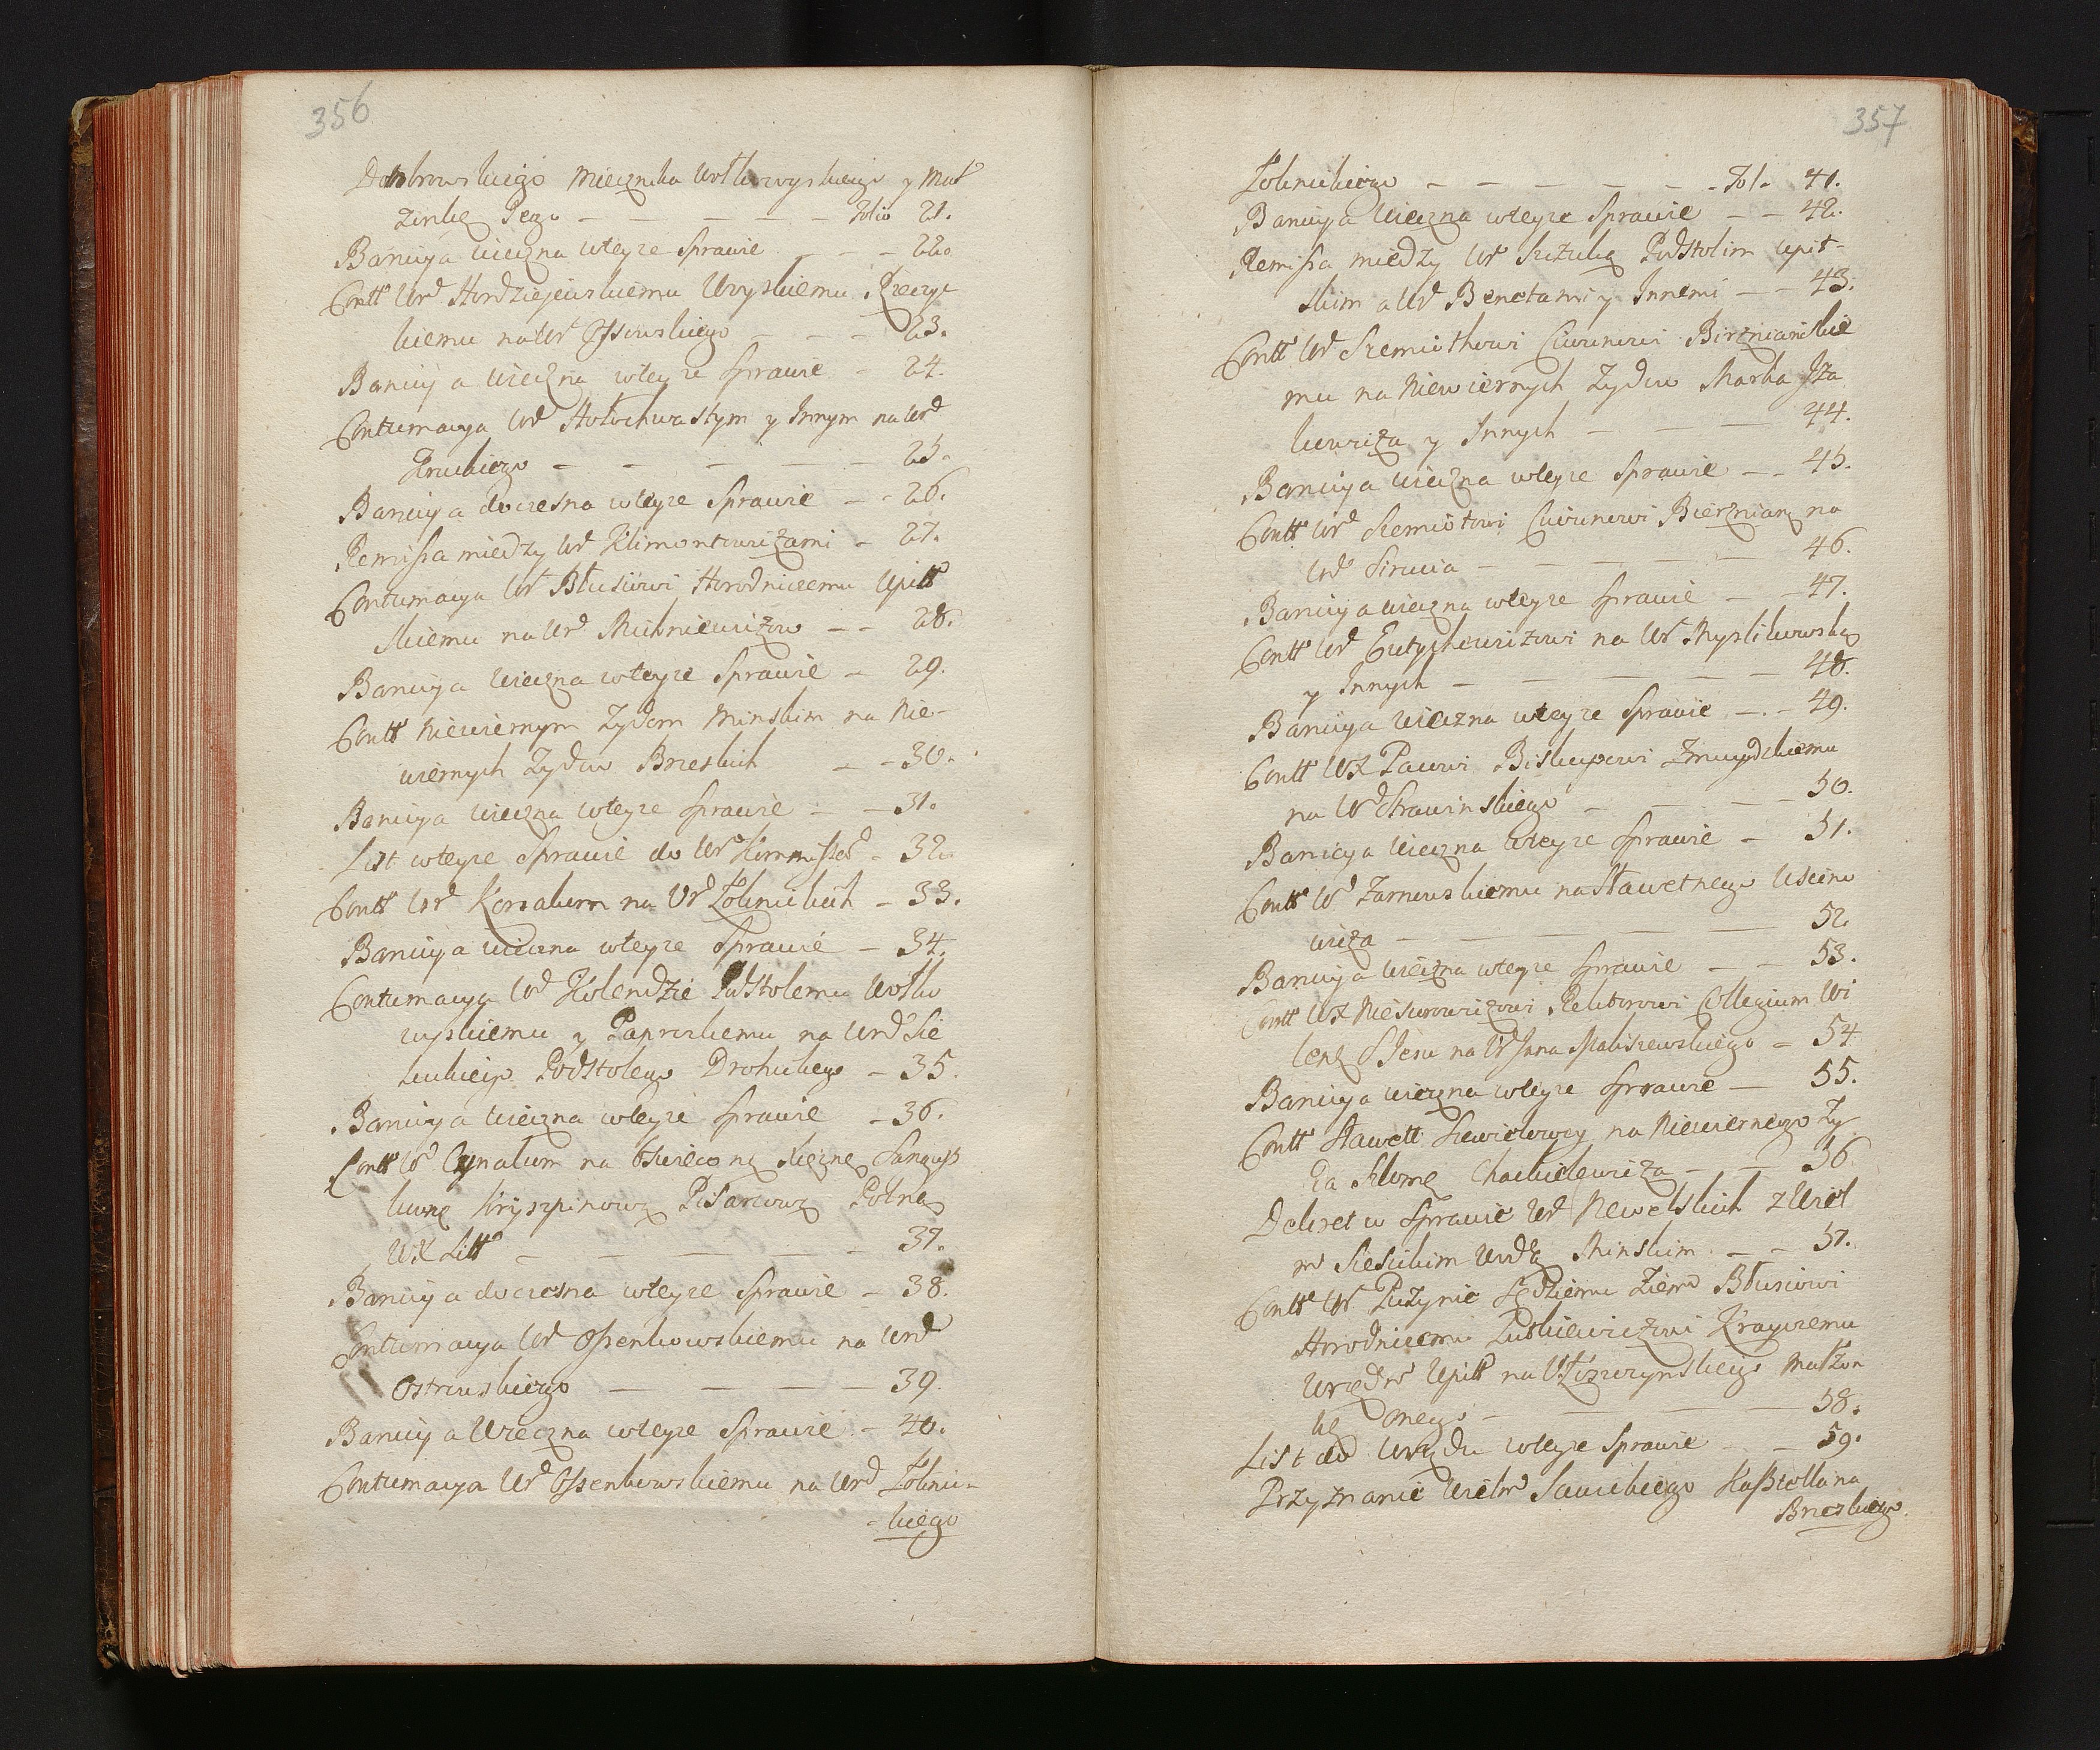 356
Dombrowskiego Miecznika Wołkowyskiego y Mał
żąkę Jego — — — — Folio 21.
Banicya wieczna wteyze Sprawie — — 22.
Contt Urd Hordziejewskiemu Woyskiemu Rzeczyc
kiemu na Ur Ossowskiego — — — 23.
Banicya wieczna wteyze Sprawie — 24.
Contumacya Urd Hołochwastym y Innym na Urd
— — — — 25.
Banicya doczesna wteyze Sprawie — - 26.
Remissa miedzy Ur Klimontowiczami - 27.
Contumacya Ur Błusiowi Horodniczemu Upitt
skiemu na Urd Michniewiczow — - 28.
Banicya wieczna wteyze Sprawie — 29.
Contt Niewiernym Zydom Minskim na Nie-
wiernych Zydow Brzeskich — - 30.
Banicya wieczna wteyze Sprawie — — 31.
List wteyze Sprawie do Ur Kommissar - 32.
Contt Urd Korsakom na Urd Zolnickich - 33.
Banicya wieczna wteyze Sprawie — 34.
Contumacya Urd Kolendzie Podstolemu Wołko
wyskiemu y Paprockiemu na Urd Sie
Podstolego Drohickiego - 35.
Banicya wieczna wteyze Sprawie - 36.
Contt Ur Cynakom na Oswieconą Xięznę Sangusz
kownę Kryszpinową Pisarzową Polną
WX Litt — — — — — 37.
Banicya doczesna wteyze Sprawie - 38.
Contumacya Ur Ossenkowskiemu na Urd
Ostrowskiego — — — — 39.
Banicya Wieczna wteyze Sprawie - 40.
Contumacya Ur Ossenkowskiemu na Urd Zolnic-
- kiego
357
Zolnickiego — — — — — - Fol. 41.
Banicya Wieczna wteyze Sprawie — — 42.
Remissa miedzy Ur Podstolim Upit-
skim a Ur Benetami y Innemi — - 43.
Contt Urd Szemiothowi Ciwunowi Birzniańskie
mu na Niewiernych Zydow Marka Jza
kowicza y Innych — — — 44.
Banicya wieczna wteyze Sprawie — - 45.
Contt Urd Szemiotowi Ciwunowi Bierznian na
Urd Sirucia — — — — — 46.
Banicya wieczna wteyze Sprawie — - 47.
Contt Urd Eutychewiczowi na Ur Myslikowską
y Innych — — — — — 48.
Banicya wieczna wteyze Sprawie — . — 49.
Contt WX Pacowi Biskupowi Zmuydzkiemu
na Urd Strawinskiego — — — — 50.
Banicya wieczna wteyze Sprawie — 51.
Contt Ur Zarnowskiemu na Sławetnego Uscino
wicza — — — — — 52.
Banicya wieczna wteyze Sprawie — — 53.
Contt WX Niesurowiczowi Rektorowi Collegium Wi
leng S Jesu na Ur Jana Maliszewskiego - 54
Banicya wieczna wteyze Sprawie — 55.
Contt Sławett na Niewiernego Zy
da Szlomę Chackielewicza — — 56
Dekret w Sprawie Ur Newelskich z Wiel
m Siesickim Wodą Minskim — — 57.
Contt Ur Puzynie Sędziemu Ziem Błusiowi
Horodniczemu Putkiewiczowi Krayczemu
Urzędn Upitt na Małzon
kę onego — — — 58.
List do Urzędu wteyze Sprawie — 59.
Przyznanie Wielm Sawickiego Kasztellana
Brzeskiego.